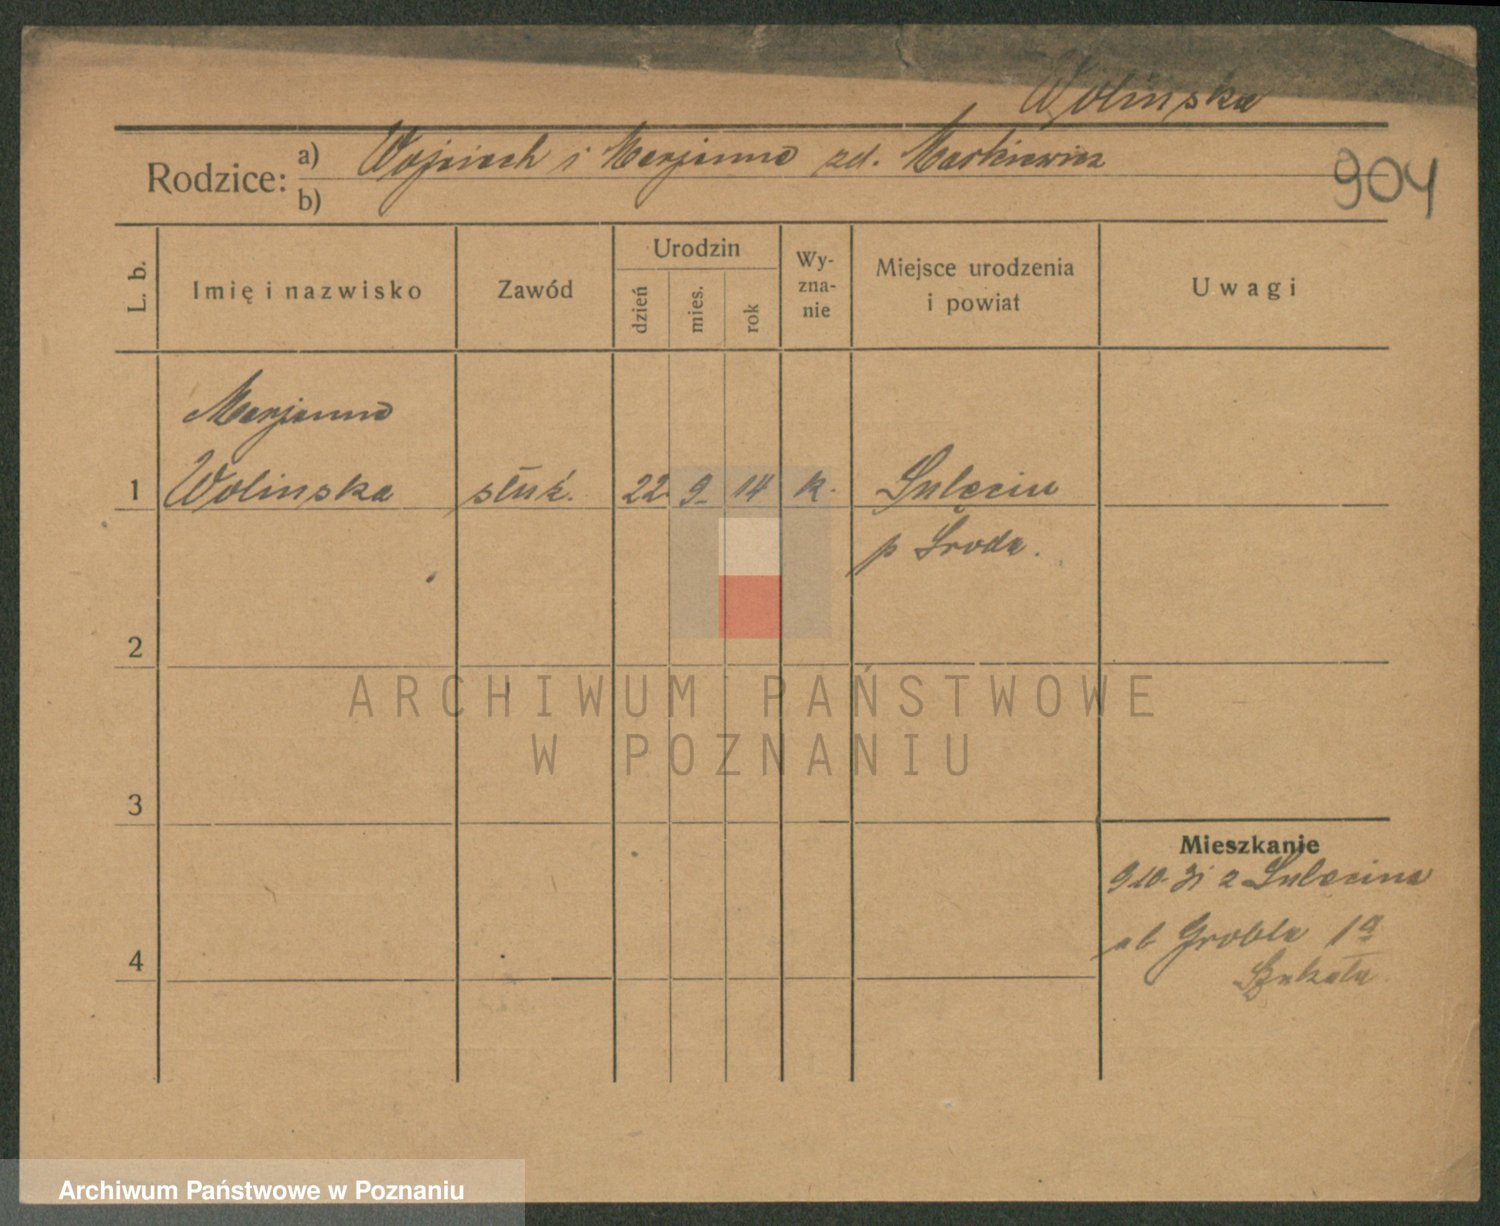 Wolinska
Rodzice: a) Wojciech i Marjanna zd. Markiewicz
b)
904
L. b.
Imię i nazwisko
Zawód
Urodzin
dzień
mies.
rok
Wy-
zna-
nie
Miejsce urodzenia
i powiat
Uwagi
Marjanna
1 Wolinska służ. 22. 9 14 k. Sulęcin
p Środa.
2
ARCHIWUM PAŃSTWOWE
W POZNANIU
3
Mieszkanie
9.10.31 z Sulęcina
ul Grobla 1a
4
Szukała
Archiwum Państwowe w Poznaniu